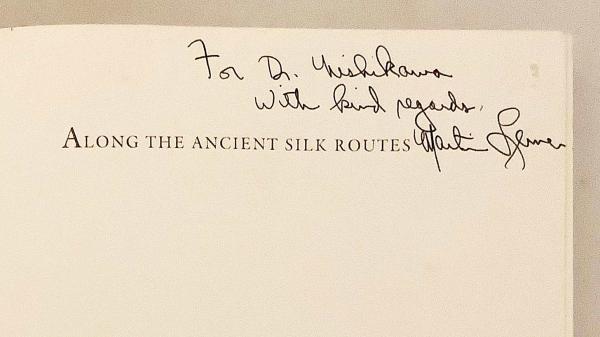 For Dr. Nishikawa
With kind regards,
ALONG THE ANCIENT SILK ROUTES Martin Lerner